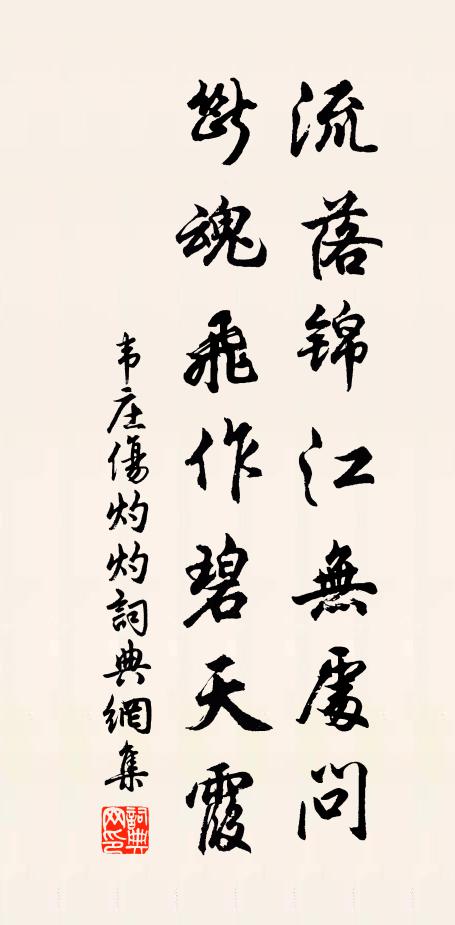 流落锦江無處問
断魂飛作碧天霞
韦庄傷灼灼詞典網集
詞典網印